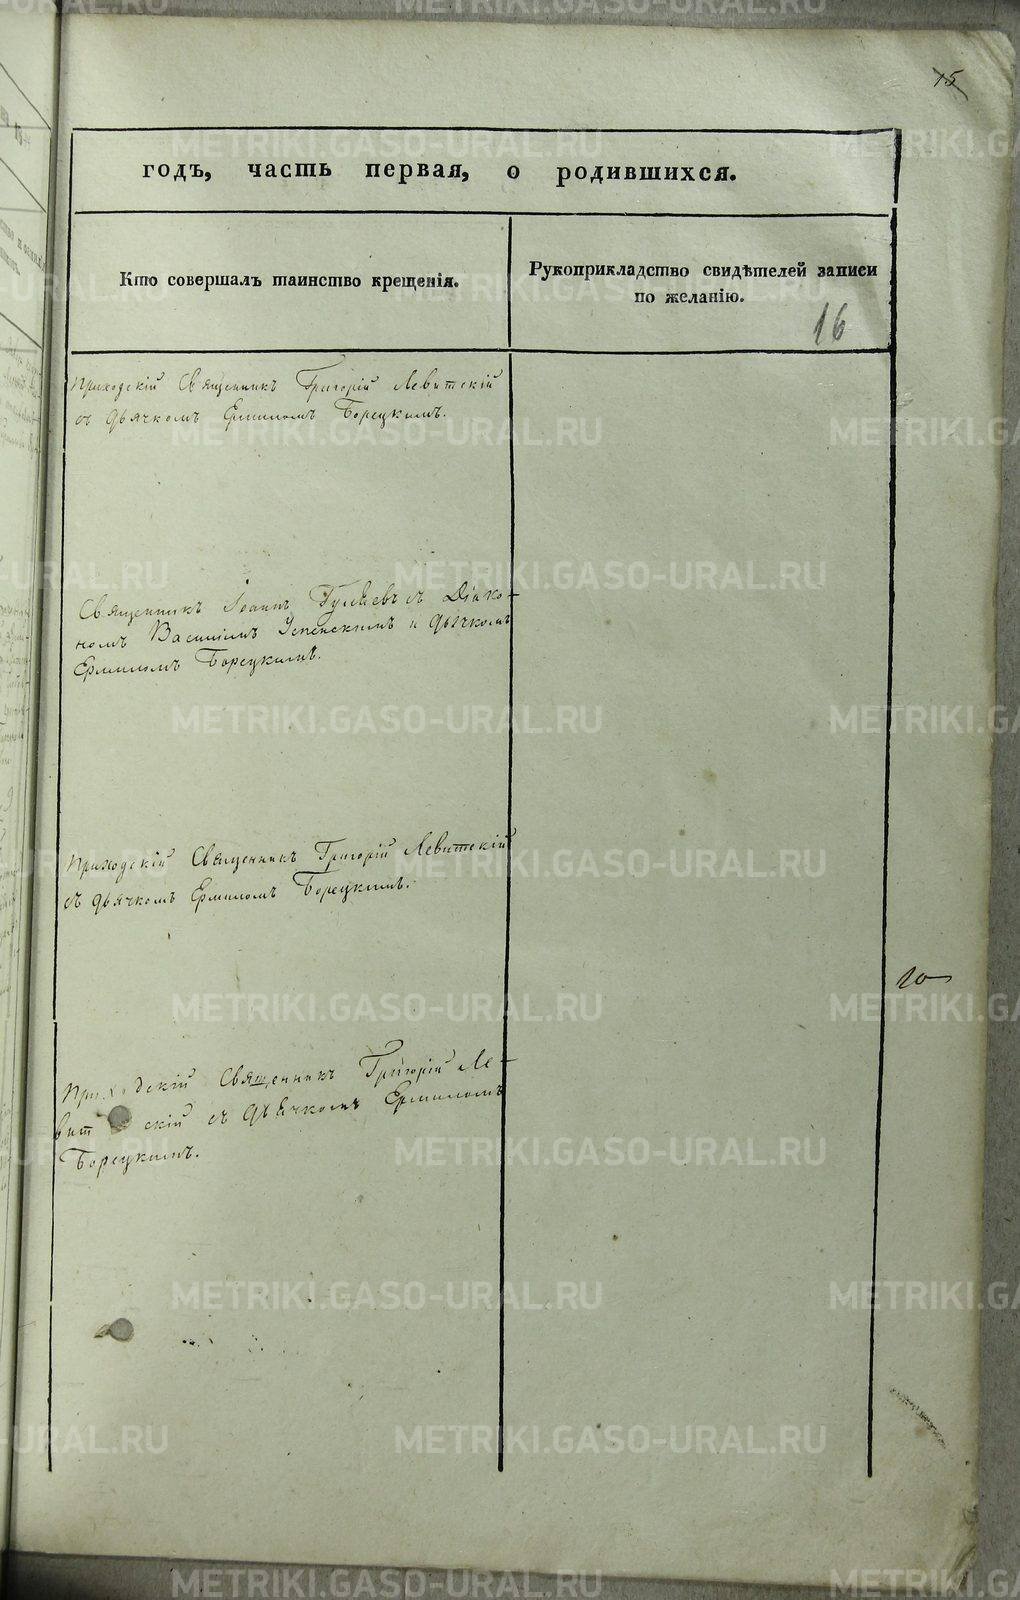 15
годъ, часть первая, о родившихся.
Кто совершалъ таинство крещенія.
Рукоприкладство свидѣтелей записи
по желанію.
16
Приходскій Священникъ Григорій Левитскій
съ дьячкомъ Ермиломъ Борецкимъ.
Священникъ Іоаннъ Гуляевъ съ Діако-
номъ Василіемъ Успенскимъ и дьячкомъ
Ермиломъ Борецкимъ.
Приходскій Священникъ Григорій Левитскій
съ дьячкомъ Ермиломъ Борецкимъ.
20
Приходскій Священникъ Григорій Ле-
витскій съ дьячкомъ Ермиломъ
Борецкимъ.
METRIKI.GASO-URAL.RU